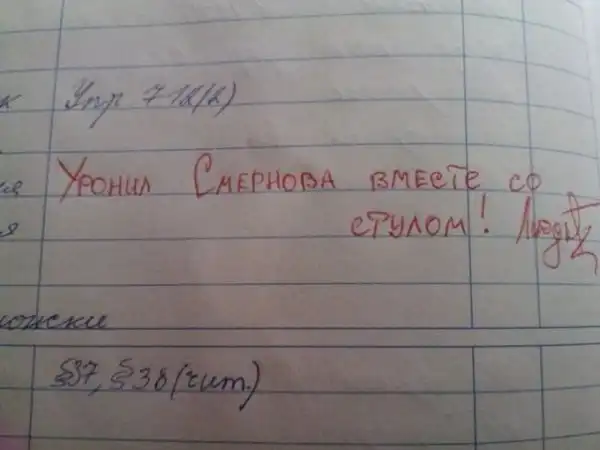 к Упр 718(2)
Уронил Смернова вместе со
стулом!
я
§37, §38 (чит.)